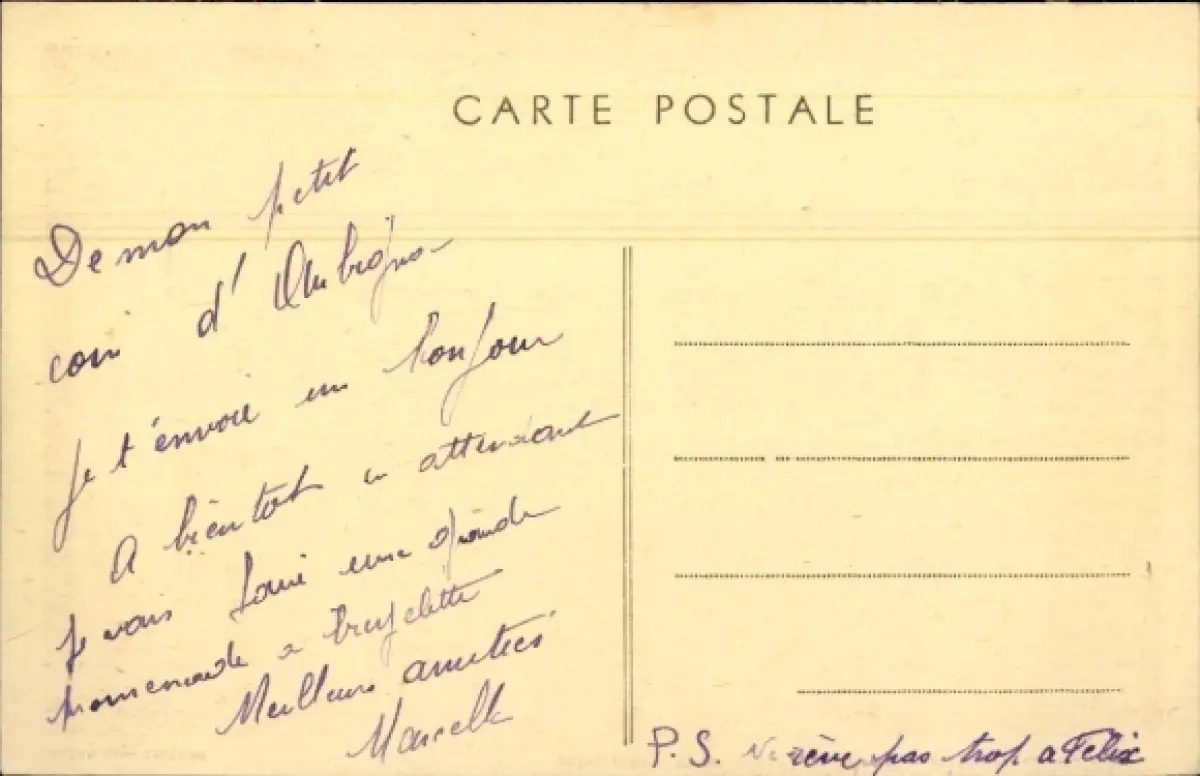 CARTE POSTALE
De mon petit
coin d'
Je t'envoie un bonjour
A bientot en attendant
Je vais faire une grande
promenade a bicyclette
Meilleures amities
Marcelle
P.S. Ne rêve pas trop a Felix